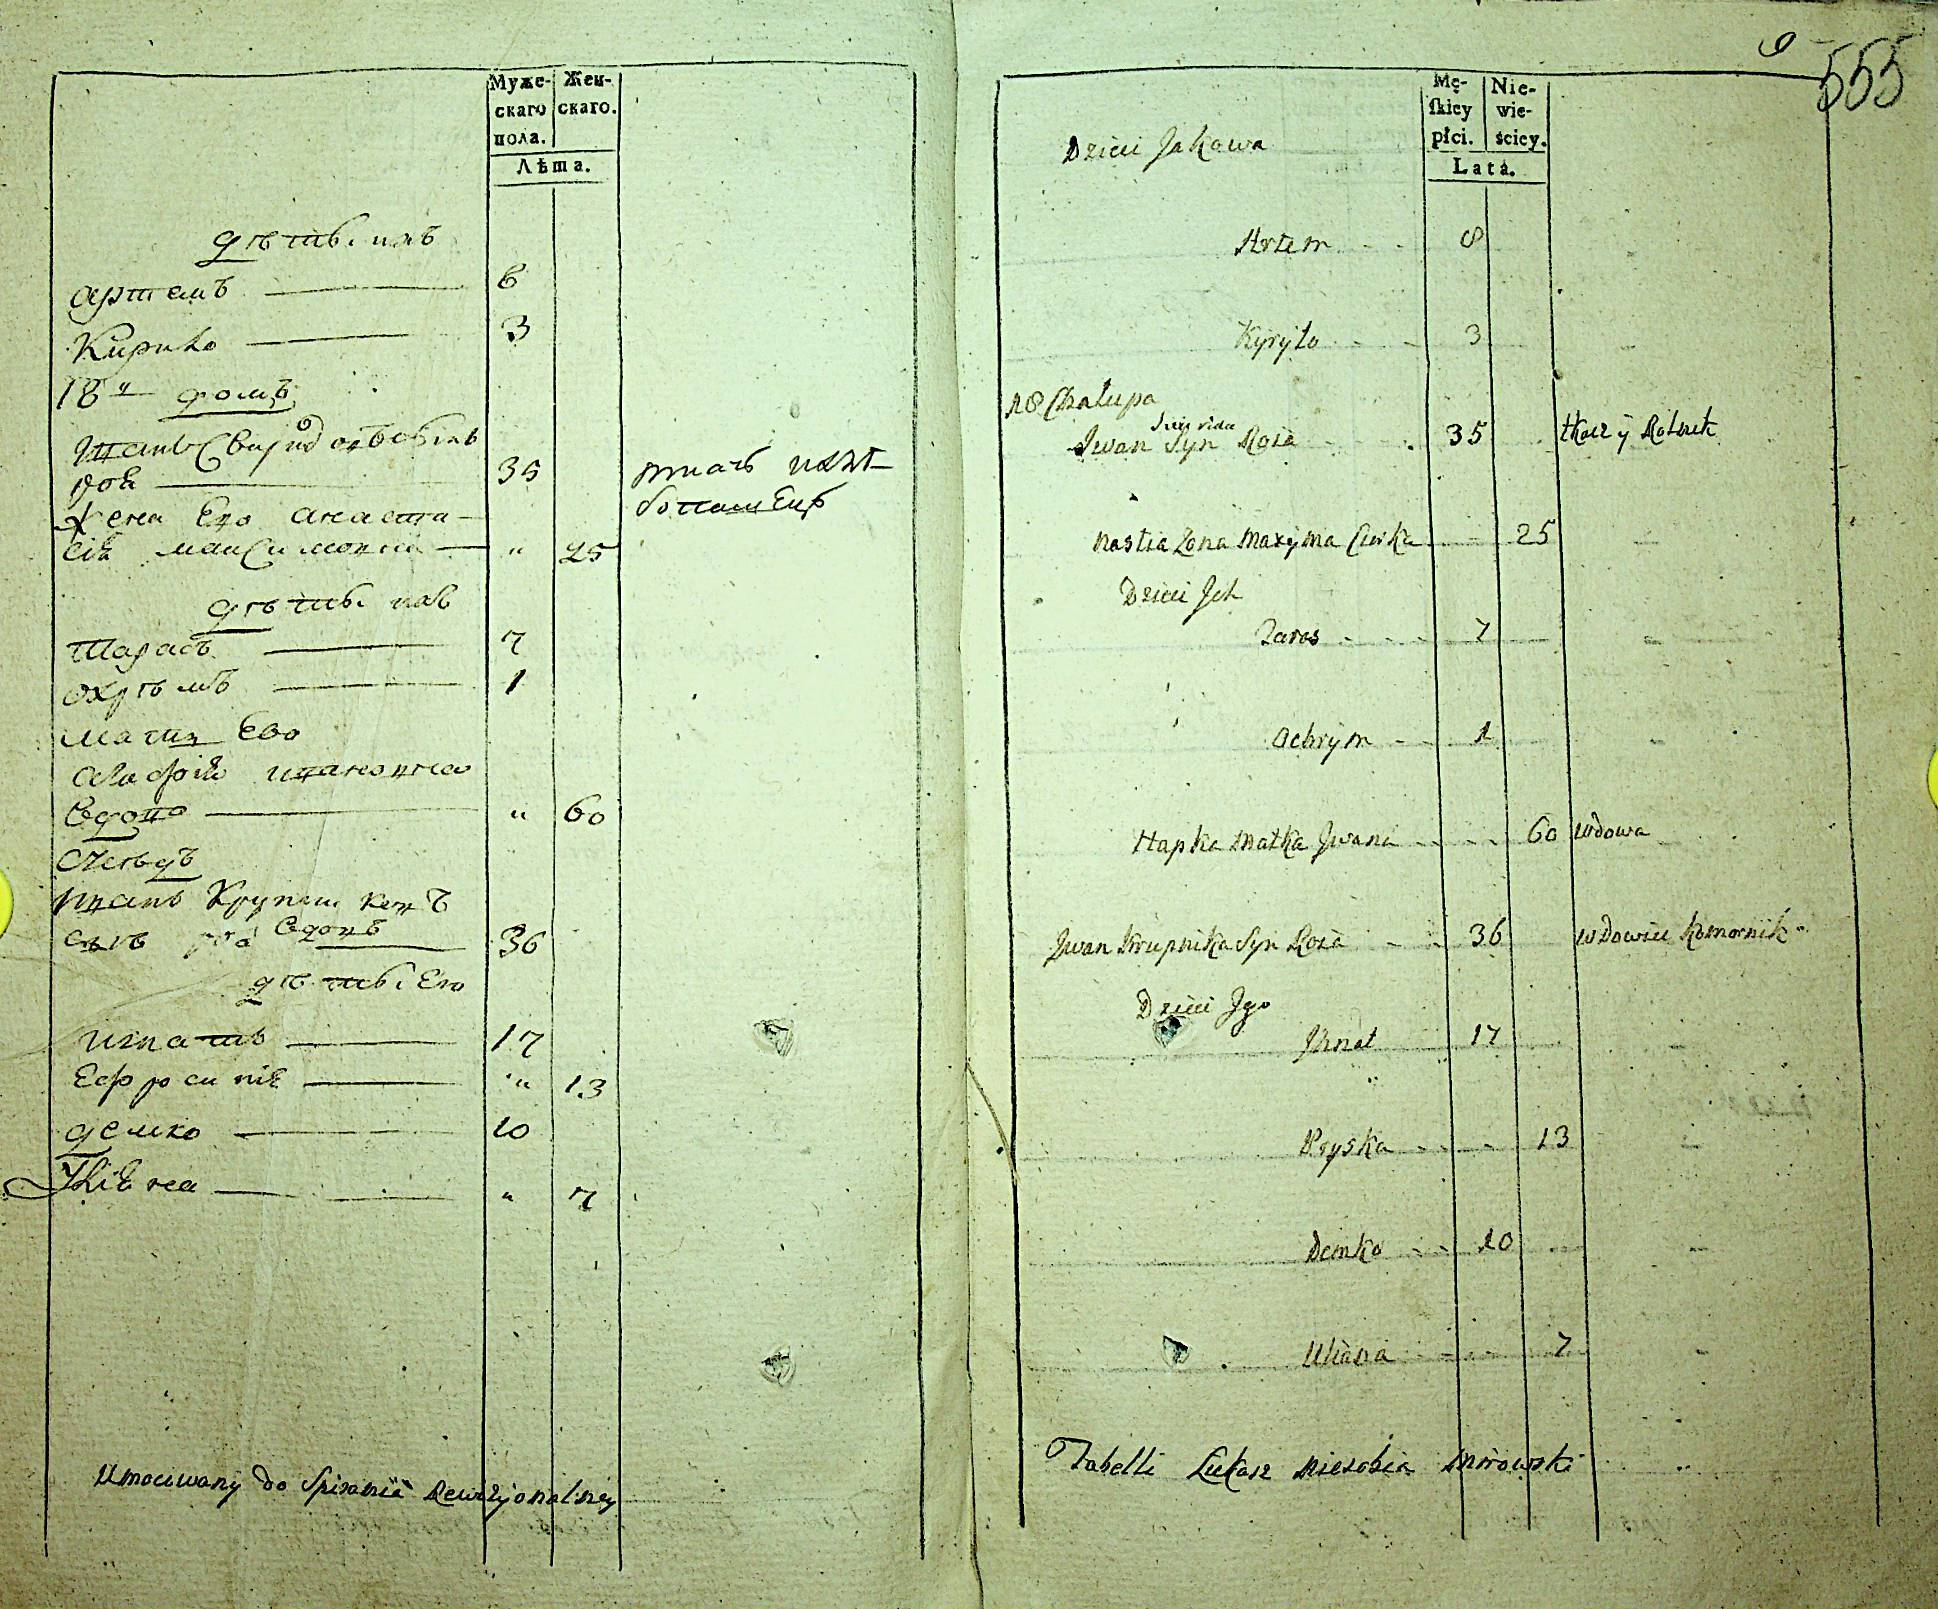 Муже-
скаго
пола.
Жен-
скаго.
Лѣта.
дѣти ихъ
Артемъ 6
Кирило 3
18й домъ
35
Жена Его Анаста-
сія Максимовна " 25
дѣти ихъ
Тарасъ 7
Охрѣмъ 1
мати Ево
Агафія Иванова
Вдова " 60
Сусѣдъ
Иванъ Крупниковъ
сынъ Вдовъ 36
дѣти Его
Игнатъ 17
Ефросинія " 13
Демко 10
Уліана " 7
Umocowany do Spisania Rewizyonalney
9
555
Mę-
skiey
płci.
Nie-
wie-
ściey.
Lata.
Dzieci Jakowa
Artem 8
Kyryło 3
18 Chałupa
Swirida
Jwan Syn 35 tkacz y Rolnik
Nastia Zona Maxyma Curka 25
Dzieci Jch
Taras 7
Ochrym 1
Hapka Matka Jwana 60 wdowa
Jwan Krupnika Syn 36 wdowiec Komornik
Dzieci Jgo
Jhnat 17
Pryska 13
Demko 10
Uliana 7
Tabelli Łukasz Mirowski